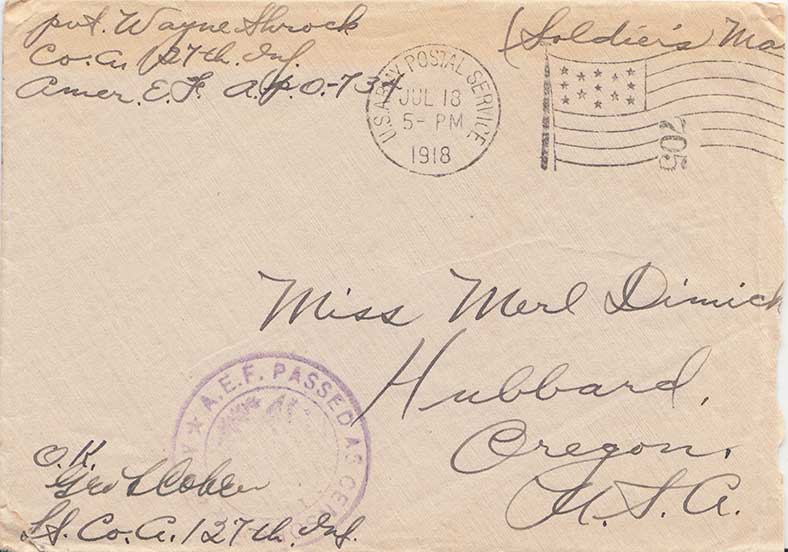 pvt. Wayne Shrock
Co. A. 127th. Inf.
Amer. E. F. A.P.O.-734
(Soldier's Ma
U.S. ARMY POSTAL SERVICE
JUL 18
5- PM
1918
705
Miss Merl Dimick
Hubbard,
Oregon.
U.S.A.
A.E.F. PASSED AS CEN
O.K.
Geo
Lt. Co. A. 127th. Inf.